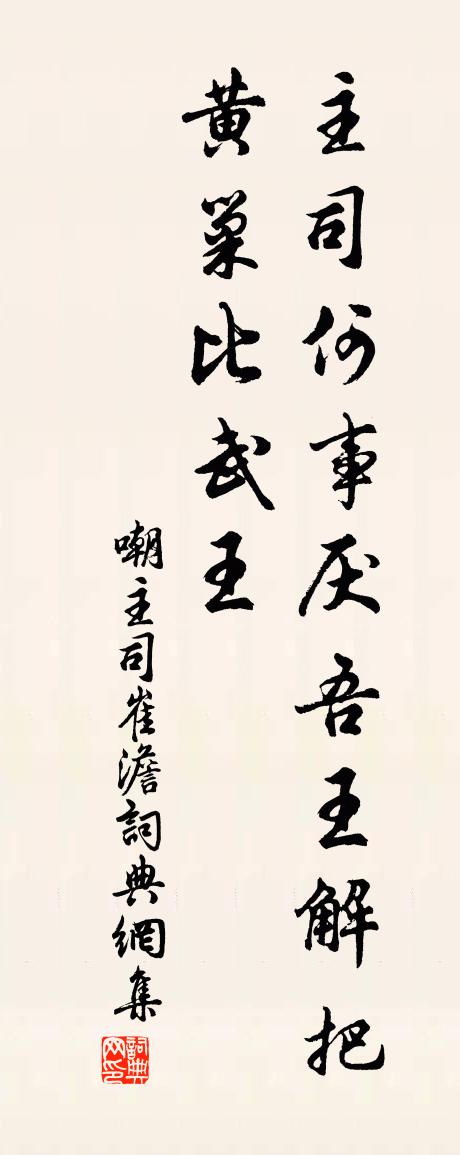 主司何事厌吾王解把
黄巢比武王
嘲主司崔澹詞典網集
詞典
网印